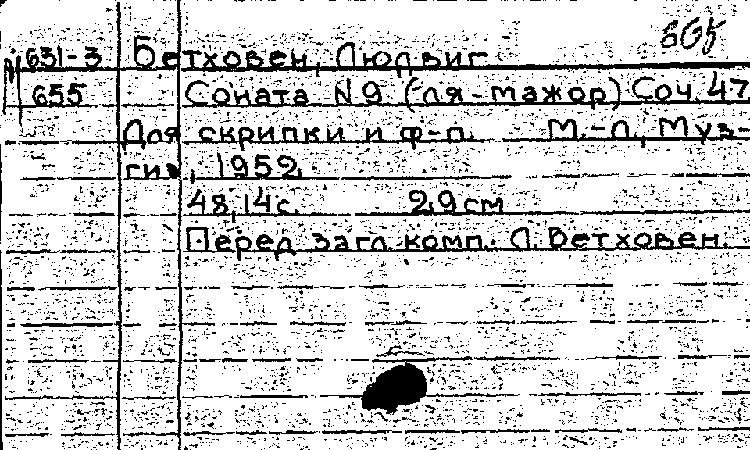 665
631-3 Бетховен, Людвиг
655 Соната N9 (ля-мажор) Соч. 47
Для скрипки и ф-п. М.-Л., Муз-
гиз, 1952.
48, 14с. 29 см
Перед загл. комп.: Л. Бетховен.